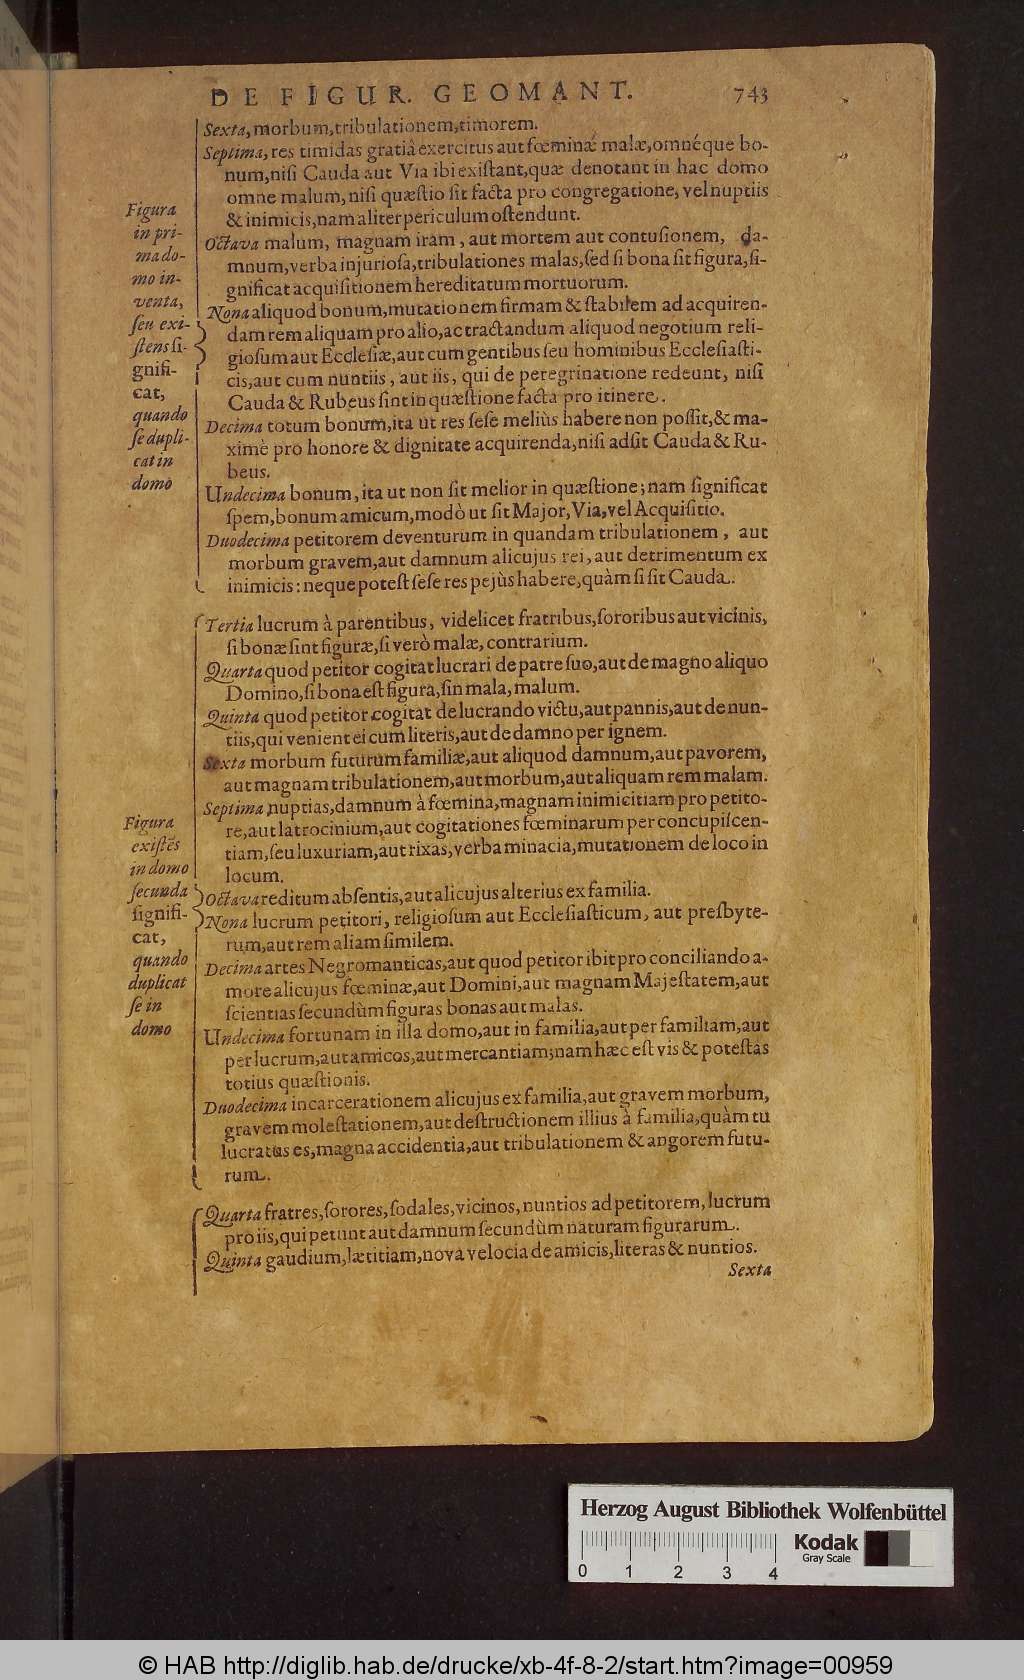 DE FIGUR. GEOMANT. 743
Sexta, morbum, tribulationem, timorem.
Septima, res timidas gratiâ exercitus aut fœminæ malæ, omnéque bo-
num, nisi Cauda aut Via ibi existant, quæ denotant in hac domo
omne malum, nisi quæstio sit facta pro congregatione, vel nuptiis
& inimicis, nam aliter periculum ostendunt.
Octava malum, magnam iram, aut mortem aut contusionem, da-
mnum, verba injuriosa, tribulationes malas, sed si bona sit figura, si-
gnificat acquisitionem hereditatum mortuorum.
Nona aliquod bonum, mutationem firmam & stabilem ad acquiren-
dam rem aliquam pro alio, ac tractandum aliquod negotium reli-
giosum aut Ecclesiæ, aut cum gentibus seu hominibus Ecclesiasti-
cis, aut cum nuntiis, aut iis, qui de peregrinatione redeunt, nisi
Cauda & Rubeus sint in quæstione facta pro itinere.
Decima totum bonum, ita ut res sese meliùs habere non possit, & ma-
ximè pro honore & dignitate acquirenda, nisi adsit Cauda & Ru-
beus.
Undecima bonum, ita ut non sit melior in quæstione; nam significat
spem, bonum amicum, modò ut sit Major, Via, vel Acquisitio.
Duodecima petitorem deventurum in quandam tribulationem, aut
morbum gravem, aut damnum alicujus rei, aut detrimentum ex
inimicis: neque potest sese res pejùs habere, quàm si sit Cauda.
Figura
in pri-
ma do-
mo in-
venta,
seu exi-
stens si-
gnifi-
cat,
quando
se dupli-
cat in
domo
Tertia lucrum à parentibus, videlicet fratribus, sororibus aut vicinis,
si bonæ sint figuræ, si verò malæ, contrarium.
Quarta quod petitor cogitat lucrari de patre suo, aut de magno aliquo
Domino, si bona est figura, sin mala, malum.
Quinta quod petitor cogitat de lucrando victu, aut pannis, aut de nun-
tiis, qui venient ei cum literis, aut de damno per ignem.
Sexta morbum futurum familiæ, aut aliquod damnum, aut pavorem,
aut magnam tribulationem, aut morbum, aut aliquam rem malam.
Septima nuptias, damnum à fœmina, magnam inimicitiam pro petito-
re, aut latrocinium, aut cogitationes fœminarum per concupiscen-
tiam, seu luxuriam, aut rixas, verba minacia, mutationem de loco in
locum.
Octava reditum absentis, aut alicujus alterius ex familia.
Nona lucrum petitori, religiosum aut Ecclesiasticum, aut presbyte-
rum, aut rem aliam similem.
Decima artes Negromanticas, aut quod petitor ibit pro conciliando a-
more alicujus fœminæ, aut Domini, aut magnam Majestatem, aut
scientias secundùm figuras bonas aut malas.
Undecima fortunam in illa domo, aut in familia, aut per familiam, aut
per lucrum, aut amicos, aut mercantiam; nam hæc est vis & potestas
totius quæstionis.
Duodecima incarcerationem alicujus ex familia, aut gravem morbum,
gravem molestationem, aut destructionem illius à familia, quàm tu
lucratus es, magna accidentia, aut tribulationem & angorem futu-
rum.
Figura
existēs
in domo
secunda
signifi-
cat,
quando
duplicat
se in
domo
Quarta fratres, sorores, sodales, vicinos, nuntios ad petitorem, lucrum
pro iis, qui petunt aut damnum secundùm naturam figurarum.
Quinta gaudium, lætitiam, nova velocia de amicis, literas & nuntios.
Sexta
Herzog August Bibliothek Wolfenbüttel
Kodak
Gray Scale
0 1 2 3 4
© HAB http://diglib.hab.de/drucke/xb-4f-8-2/start.htm?image=00959